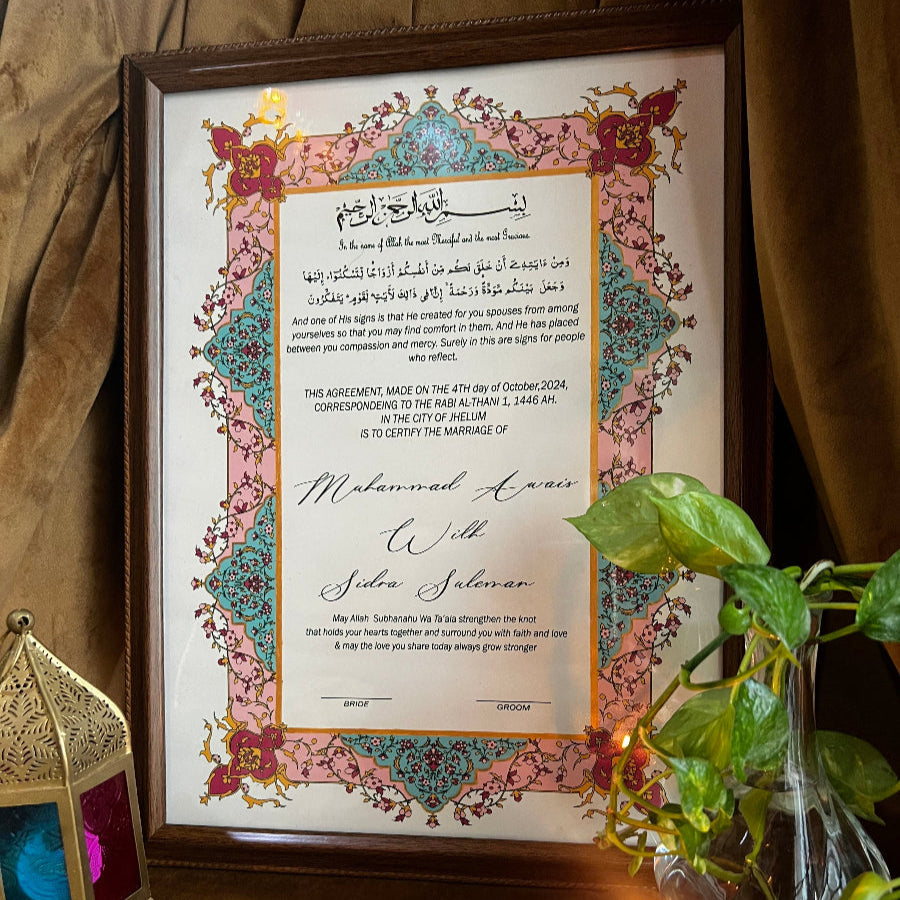 بِسْمِ اللَّهِ الرَّحْمَٰنِ الرَّحِيمِ
In the name of Allah the most Merciful and the most Gracious.
وَمِنْ ءَايَـٰتِهِۦٓ أَنْ خَلَقَ لَكُم مِّنْ أَنفُسِكُمْ أَزْوَٰجًا لِّتَسْكُنُوٓا۟ إِلَيْهَا
وَجَعَلَ بَيْنَكُم مَّوَدَّةً وَرَحْمَةً ۚ إِنَّ فِى ذَٰلِكَ لَأَيَـٰتٍ لِّقَوْمٍ يَتَفَكَّرُونَ
And one of His signs is that He created for you spouses from among
yourselves so that you may find comfort in them. And He has placed
between you compassion and mercy. Surely in this are signs for people
who reflect.
THIS AGREEMENT, MADE ON THE 4TH day of October,2024,
CORRESPONDEING TO THE RABI AL-THANI 1, 1446 AH.
IN THE CITY OF JHELUM
IS TO CERTIFY THE MARRIAGE OF
Muhammad Awais
With
Sidra Suleman
May Allah Subhanahu Wa Ta'ala strengthen the knot
that holds your hearts together and surround you with faith and love
& may the love you share today always grow stronger
BRIDE GROOM